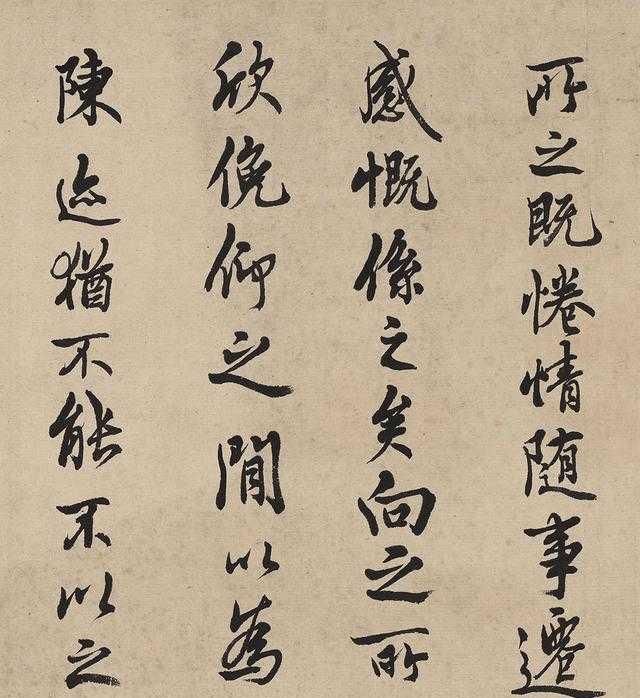 所之既惓情随事遷
感慨係之矣向之所
欣俛仰之間以為
陳迹猶不能不以之